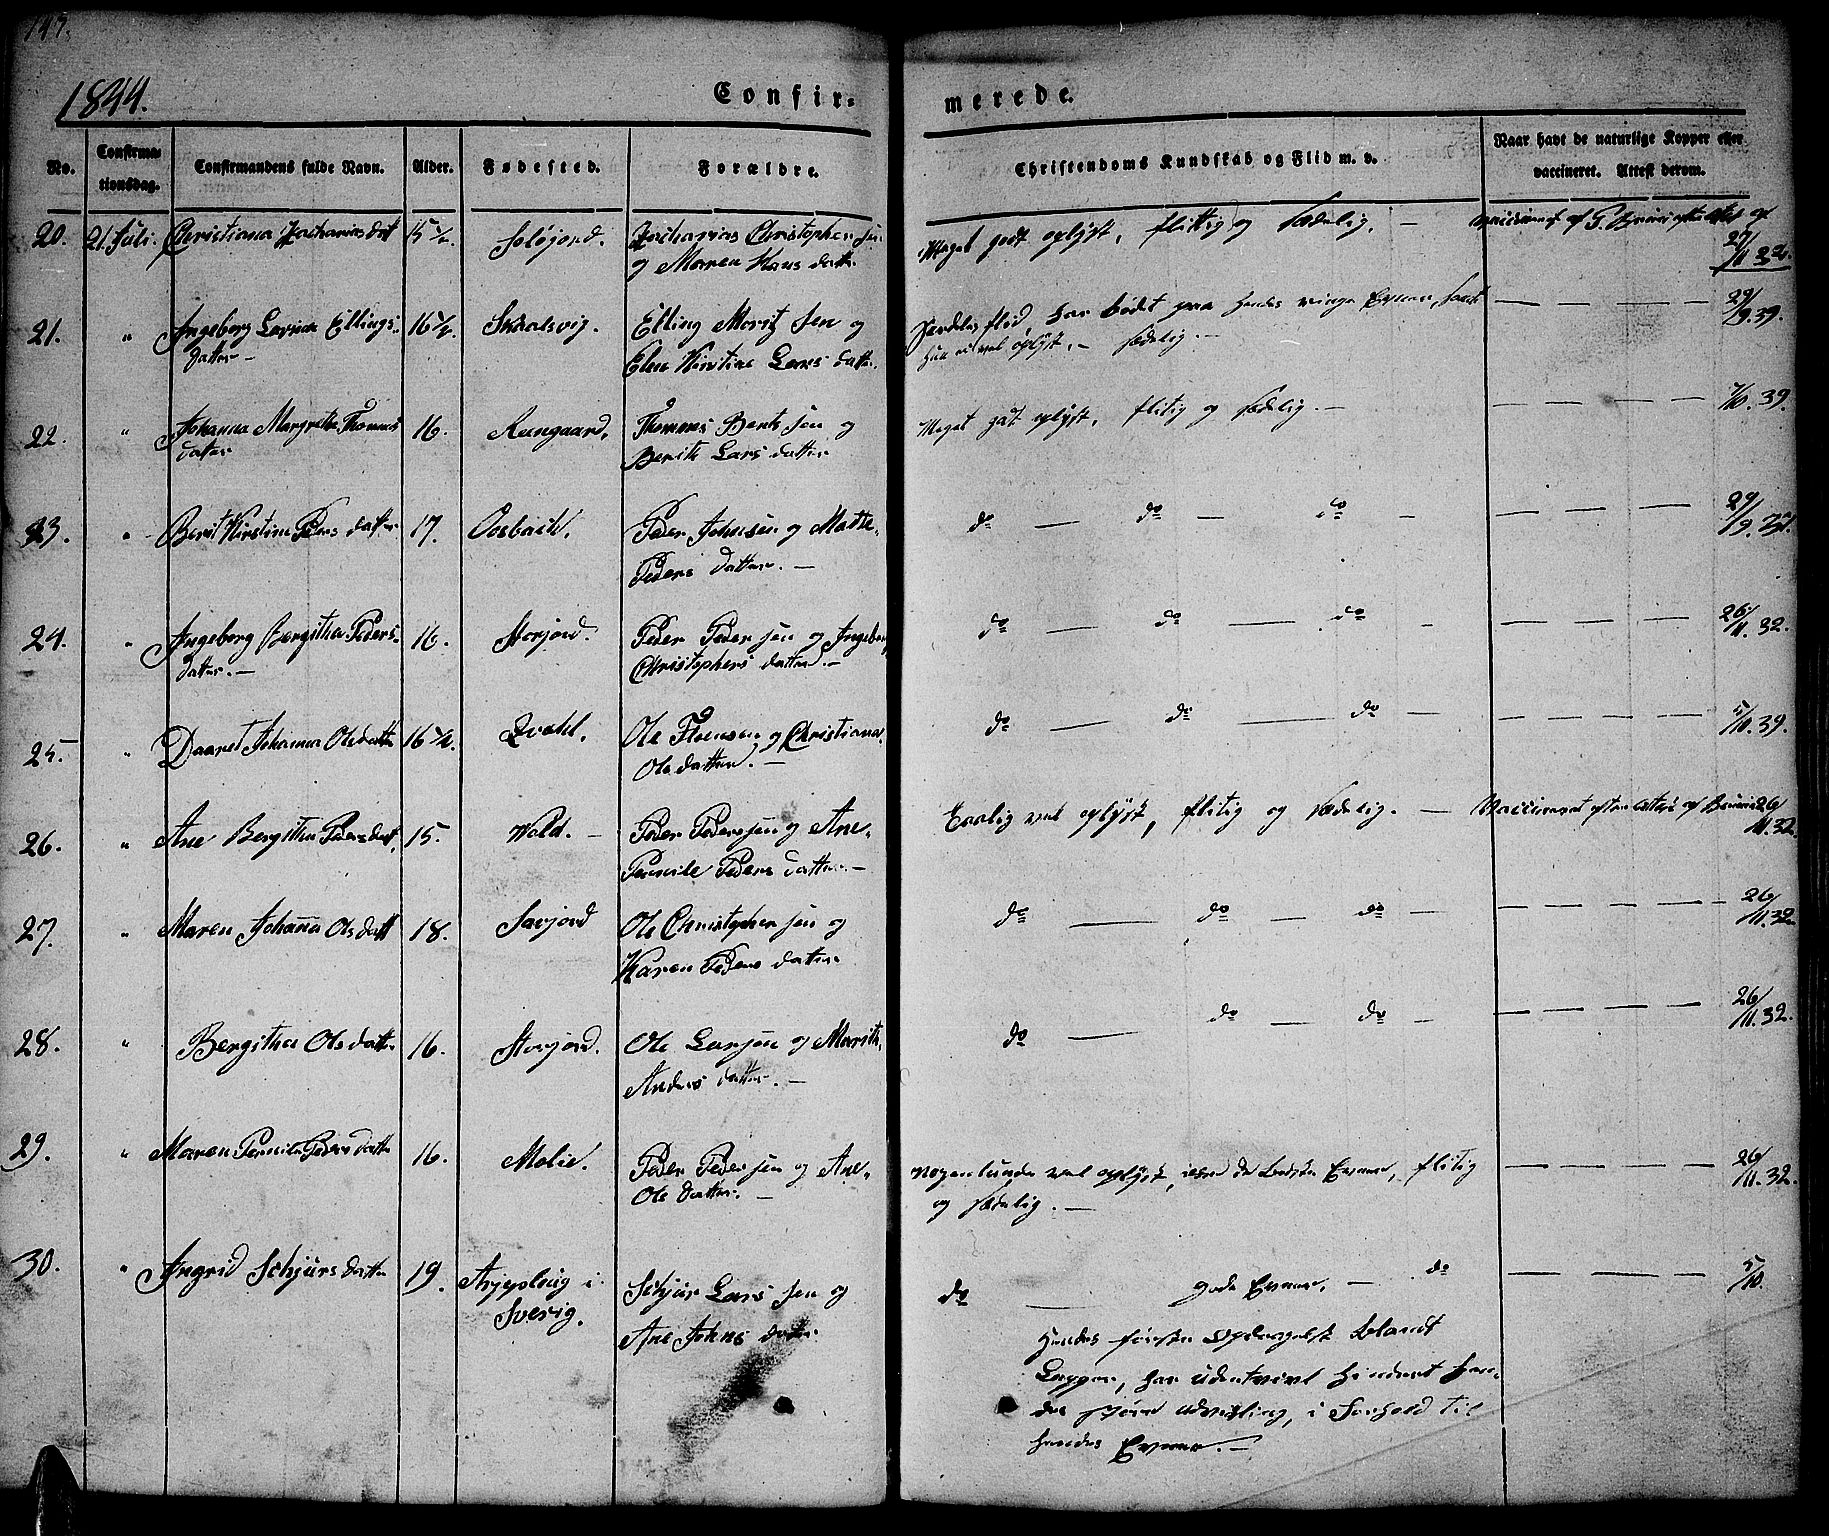 147.
1844.
Confir-
merede.
No.
Confirma-
tionsdag.
Confirmandens fulde Navn.
Alder.
Fødested.
Forældre.
Christendoms Kundskab og Flid m. v.
Naar havt de naturlige Kopper eller
vaccineret. Attest derom.
20. 21 Juli. Christiana Zachariasdatt 15½. Soløjord. Zacharias Christophersen
og Maren Hans datter
Meget godt oplyst, flittig og sædelig. —
27/11 32.
21. " Ingeborg Lovisa Ellings- 16½. Skaalsvig. Elling Moritz sen og
datter — Elen Kirstine Lars datter.
flid har bødet paa hendes ringe Evner, samt
hun er vel oplyst. — sædelig. —
— — — — 29/9. 39.
22. " Johanna Margrethe Thomas 16. Rengaard. Thomas Bentsen og
datter Berith Lars datter
Meget godt oplyst, flitig og sædelig. —
— — — — 7/10. 39.
23. " Berit Kirstine Peders datter 17. Osbakk. Peder Johnsen og Marthe
Peders datter. —
do — do — do —
— — — — 29/9.
24. " Ingeborg Bergitha Peders- 16. Storjord. Peder Pedersen og Ingeborg
datter. — Christophers datter. —
do — do — do —
— — — — 26/11. 32.
25. " Daaret Johanna Olsdatter 16½. Qvahl. Ole Thensen og Christiana
Ols datter. —
do — do — do —
— — — — 5/10. 39.
26. " Ane Bergitha Pedersdatt. 15. Wold. — Peder Pedersen og Ane
Pernile Peders datter. —
Taalig vel oplyst, flitig og sædelig. — Vaccineret efter Attest af 26/11. 32.
27. " Maren Johanna Ols datt 18. Sørjord Ole Christophersen og
Karen Peders datter
do — do — do —
— — — — 26/11. 32.
28. " Bergitha Olsdatter 16. Storjord. Ole Larsen og Marith
Anders datter. —
do — do — do —
— — — — 26/11. 32.
29. " Maren Pernila Peders datter 16. Molid. Peder Pedersen og Ane
Ols datter. —
nogenlunde vel oplyst, uden de bedste Evner, flitig
og sædelig. —
— — — — 26/11. 32.
30. " Ingrid Schjursdatter 19. Arjeploug i
Sverig.
Schjur Lars sen og
Ane Johns datter
do — gode Evner, — do
— — — — 5/10.
Hendes første Opdragelse blandt
Lapper, har udentvivl hindret hen-
des større udvikling, i Forhold til
hendes Evner. —